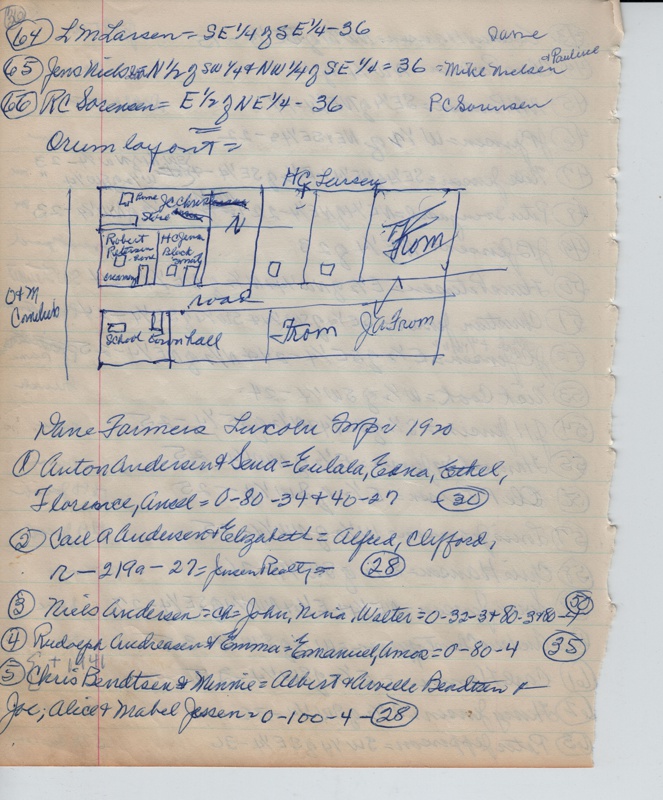 (64) L M Larsen = SE 1/4 of SE 1/4 - 36 Same
(65) Jens Nielsen N 1/2 of SW 1/4 + NW 1/4 of SE 1/4 = 36 = Mike Nielsen & Pauline
(66) RC Sorensen = E 1/2 of NE 1/4 - 36 P C Sorensen
Orum layout =
HC Larsen
Home JC Christ
Store
N
Robert Petersen home
HC Jensen Black smith
creamery
From
road
O & M
School Town hall
From
Ja From
Dane Farmers Lincoln Twp 1920
(1) Anton Andersen & Sena = Eulala, Edna, Ethel,
Florence, Ansel = 0-80-34 + 40-27 (30)
(2) Carl A Andersen & Elizabeth = Alfred, Clifford,
r - 219a - 27 = Jensen Realty (28)
(3) Niels Andersen = ch = John, Nina, Walter = 0-32-3 + 80-3 + 80-4 (30)
(4) Rudolph Andreasen & Emma = Emanuel, Amos = 0-80-4 (35)
(5) Chris Bendtsen & Minnie = Albert & Bendtsen &
Joe; Alice & Mabel Jessen = 0-100-4 - (28)